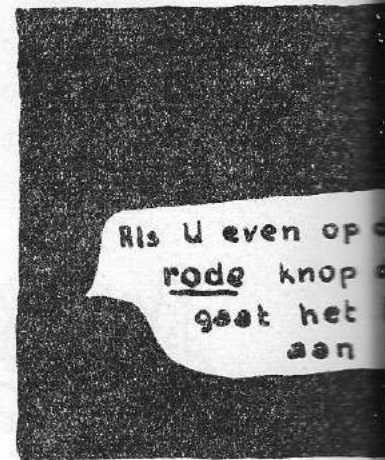 Als U even op
rode knop
gaat het
aan